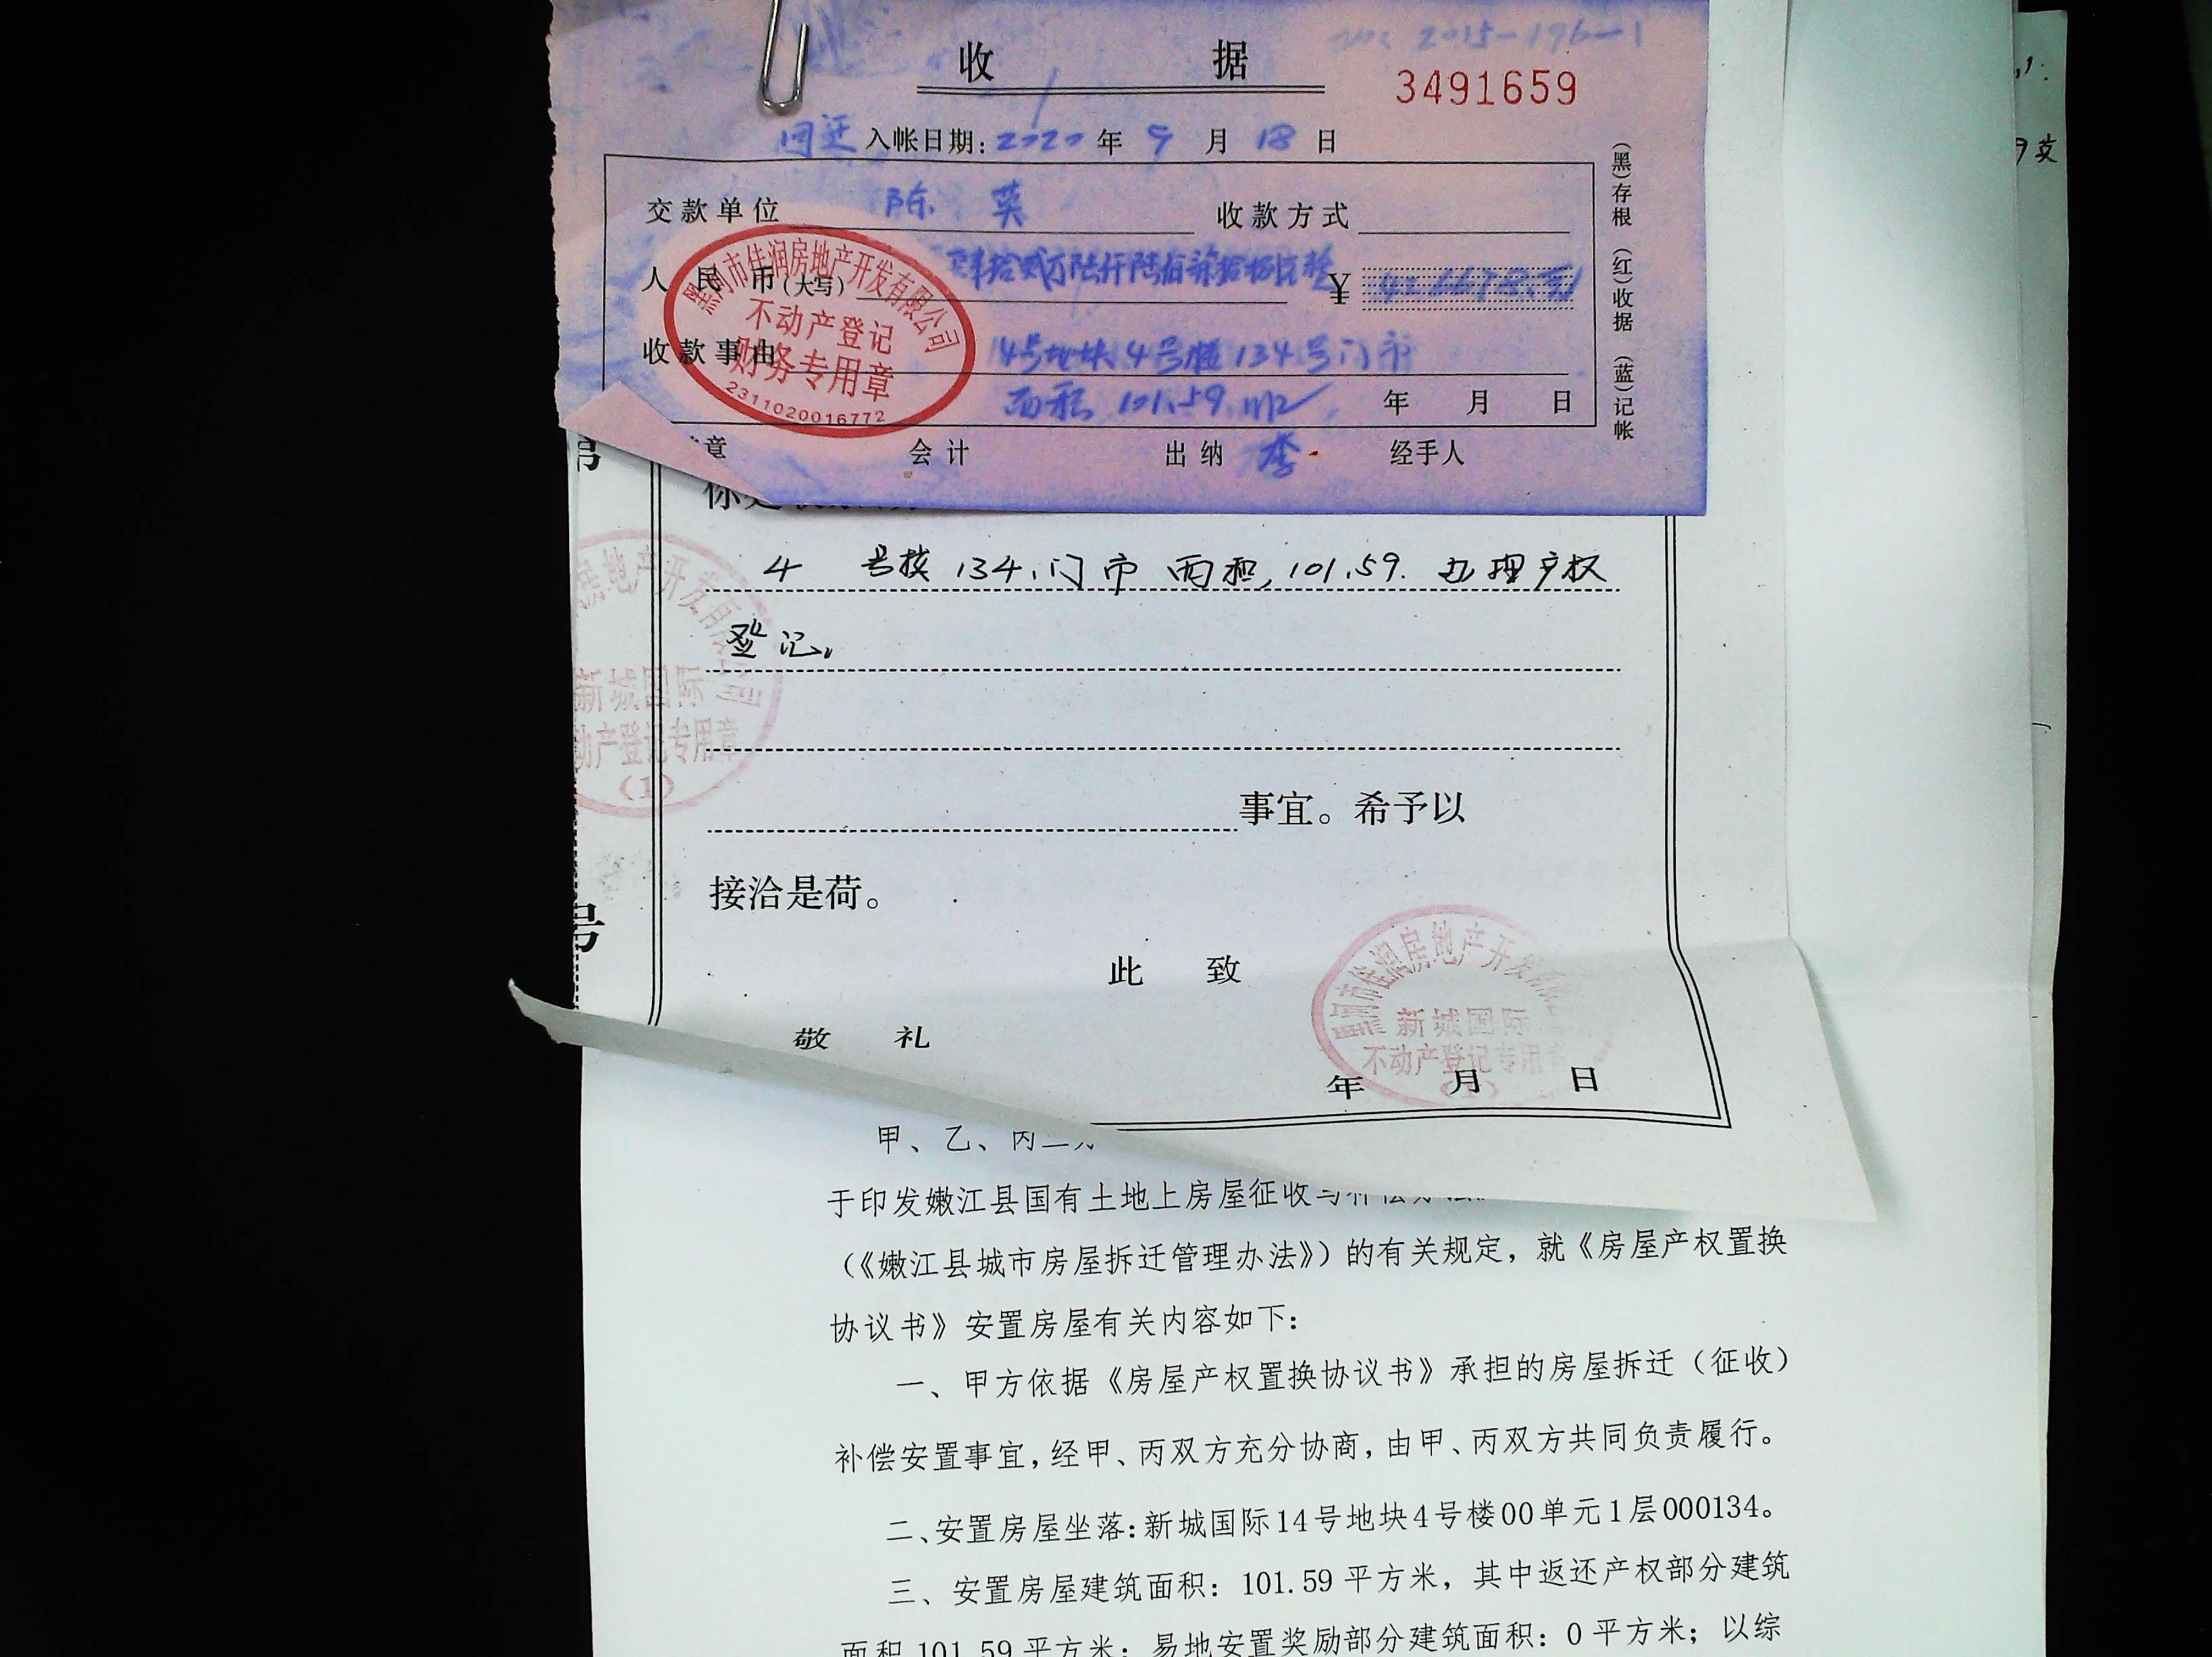 No: 2015-196-1
收 据
3491659
回迁 入帐日期：2020年 9月 18日
交款单位 陈 英 收款方式
人 民 币（大写） 肆拾贰万陆仟陆佰柒拾捌元整 ¥ 426678.元
收款事由 14号地块4号楼134号门市
面积 101.59m2 年 月 日
章 会计 出纳 李 经手人
（黑）存根 （红）收据 （蓝）记帐
黑河市佳润房地产开发有限公司
不动产登记
财务专用章
2311020016772
4 号楼 134.门市 面积,101.59. 办理产权
登记,
房地产开发有限公司
新城国际
动产登记专用章
（1）
事宜。希予以
接洽是荷。
号
此 致
敬 礼
年 月 日
黑河市佳润房地产开发有限公司
新城国际
不动产登记专用章
甲、乙、丙三方
于印发嫩江县国有土地上房屋征收与补偿办法
（《嫩江县城市房屋拆迁管理办法》）的有关规定，就《房屋产权置换
协议书》安置房屋有关内容如下：
一、甲方依据《房屋产权置换协议书》承担的房屋拆迁（征收）
补偿安置事宜，经甲、丙双方充分协商，由甲、丙双方共同负责履行。
二、安置房屋坐落：新城国际14号地块4号楼00单元1层000134。
三、安置房屋建筑面积：101.59平方米，其中返还产权部分建筑
面积 101.59平方米；易地安置奖励部分建筑面积：0平方米；以综